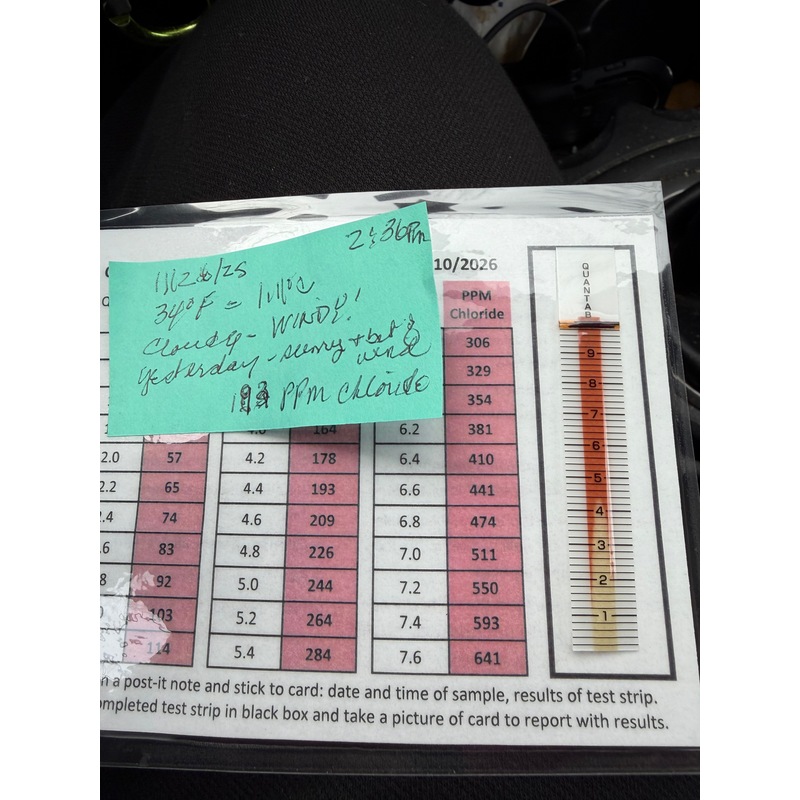 2:36Pm
11/26/25
34°F = 1.11°C
Cloudy - WINDY!
Yesterday - sunny +
wind
193 PPM Chloride
10/2026
PPM
Chloride
306
329
354
164 6.2 381
2.0 57 4.2 178 6.4 410
2.2 65 4.4 193 6.6 441
.4 74 4.6 209 6.8 474
.6 83 4.8 226 7.0 511
8 92 5.0 244 7.2 550
0 103 5.2 264 7.4 593
114 5.4 284 7.6 641
QUANTAB
9
8
7
6
5
4
3
2
1
n a post-it note and stick to card: date and time of sample, results of test strip.
ompleted test strip in black box and take a picture of card to report with results.